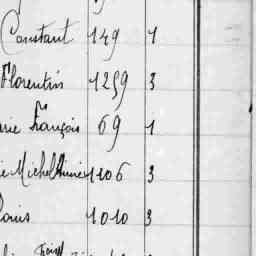 Constant 149 1
Florentin 1259 3
rie François 69 1
ie Michel Aimée 1106 3
Louis 1010 3